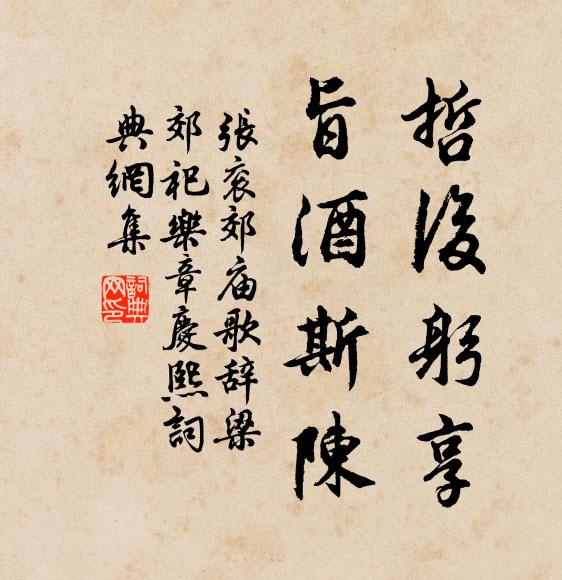 哲後躬享
旨酒斯陳
張衮郊庙歌辞梁
郊祀樂章慶熙詞
典網集
詞典網印